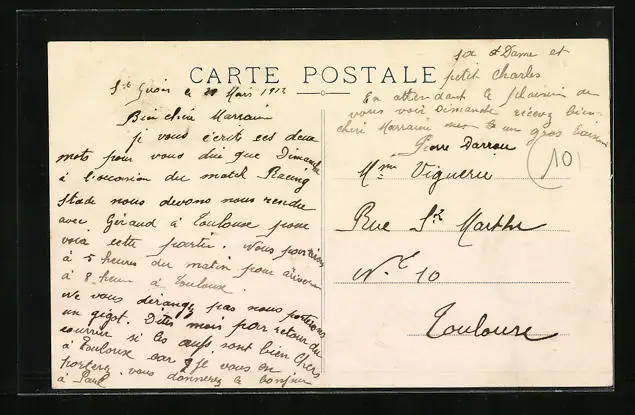 CARTE POSTALE
St Girons le 28 Mars 1912
Bien chère Marraine
Je vous écrits ces deux
mots pour vous dire que Dimanche
à l'occasion du match Racing
Stade nous devons nous rendre
avec Géraud à Toulouse pour
voir cette partie. Nous partirons
à 5 heures du matin pour ariver
à 8 heure à Toulouse.
Ne vous derangez pas nous porterons
un gigot. Dites mois par retour du
courrier si les œufs sont bien chers
à Toulouse car je vous en
porterez. vous donnerez le bonjour
à Paul
et Dame et
petit Charles
En attendant le plaisir de
vous voir Dimanche recevez bien
chère Marraine un gros
Pierre Darrau
Mme Viguerie
101
Rue Ste Marthe
No 10
Toulouse